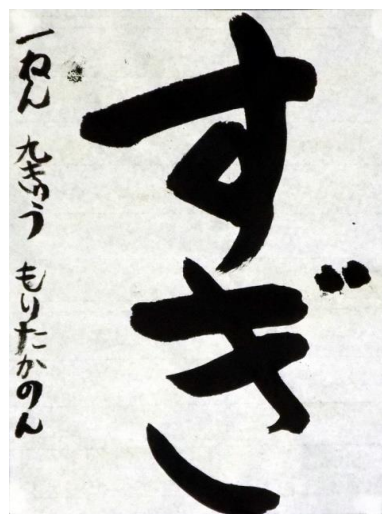 すぎ
一ねん 九きゅう もりたかのん